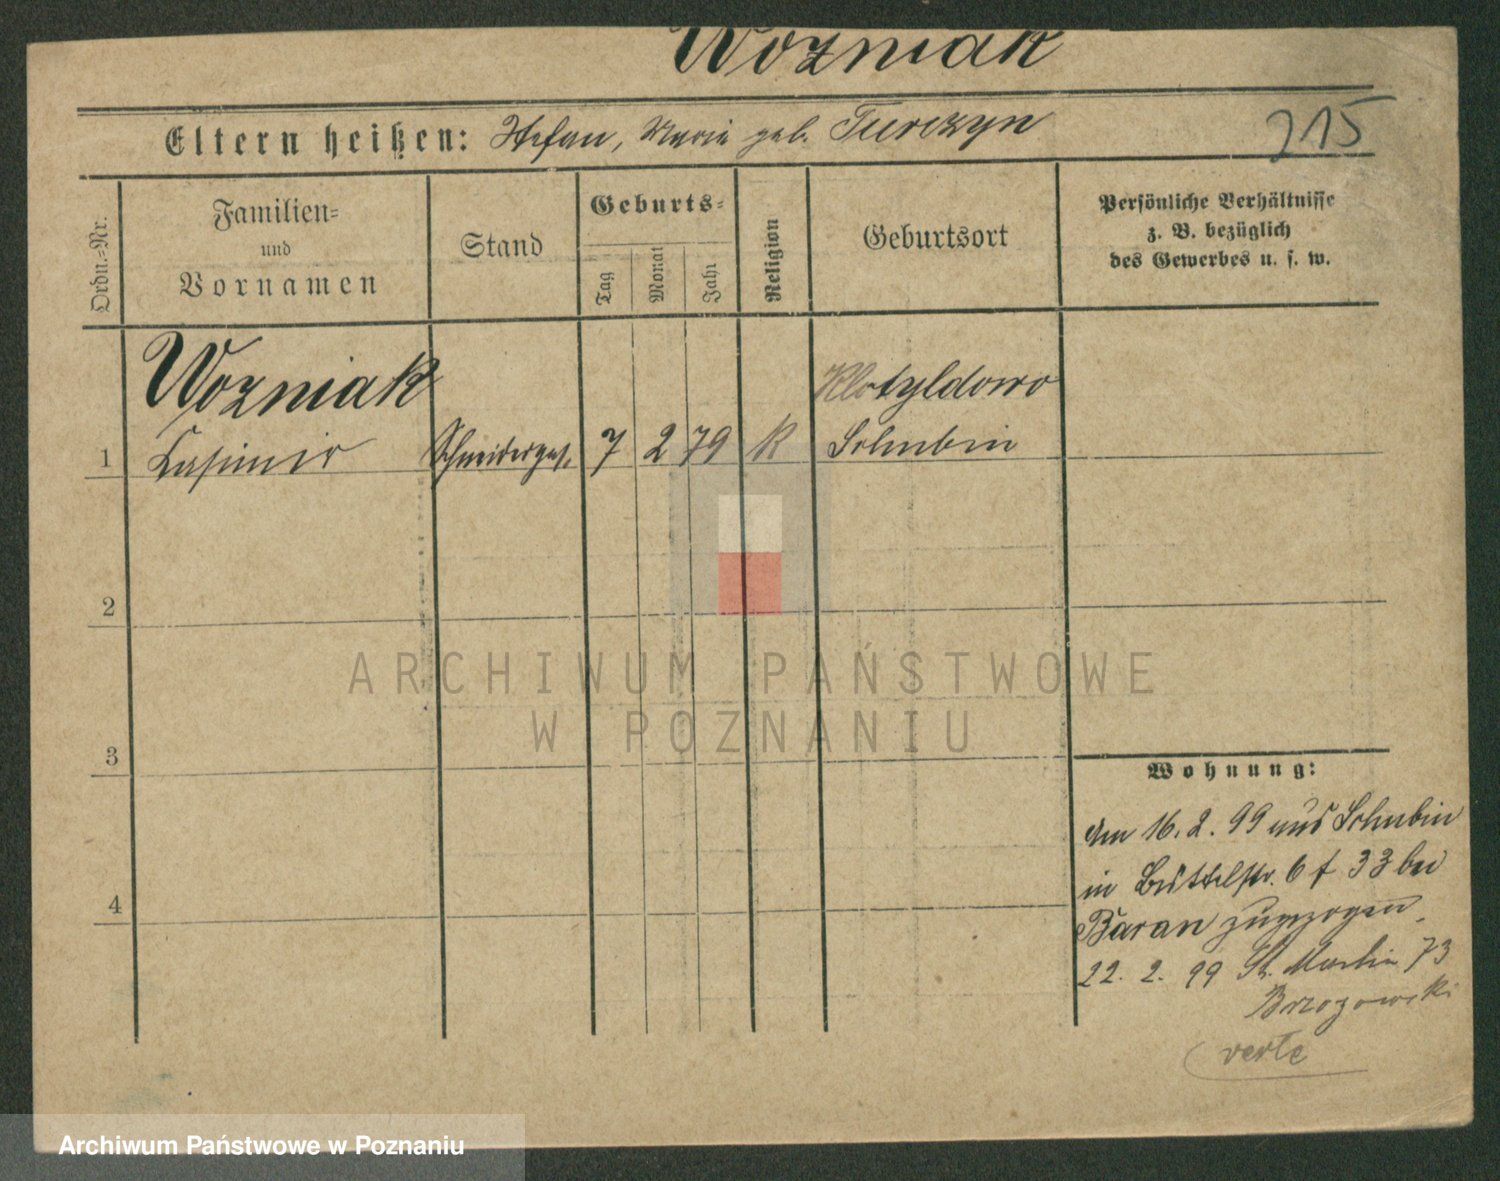 Wozniak
Eltern heißen: Stefan, Marie geb. Turczyn
215
Ordn.-Nr.
Familien-
und
Vornamen
Stand
Geburts-
Tag
Monat
Jahr
Religion
Geburtsort
Persönliche Verhältnisse
z. B. bezüglich
des Gewerbes u. s. w.
Wozniak
Klotyldowo
1 Casimir Schneiderges. 7 2 79 K Schubin
2
ARCHIWUM PAŃSTWOWE
W POZNANIU
3
Wohnung:
Am 16. 2. 99 aus Schubin
in Büttelstr. 6 f 33 bei
4
Baran zugezogen
22. 2. 99 St. Martin 73
Brzozowski
verte
Archiwum Państwowe w Poznaniu